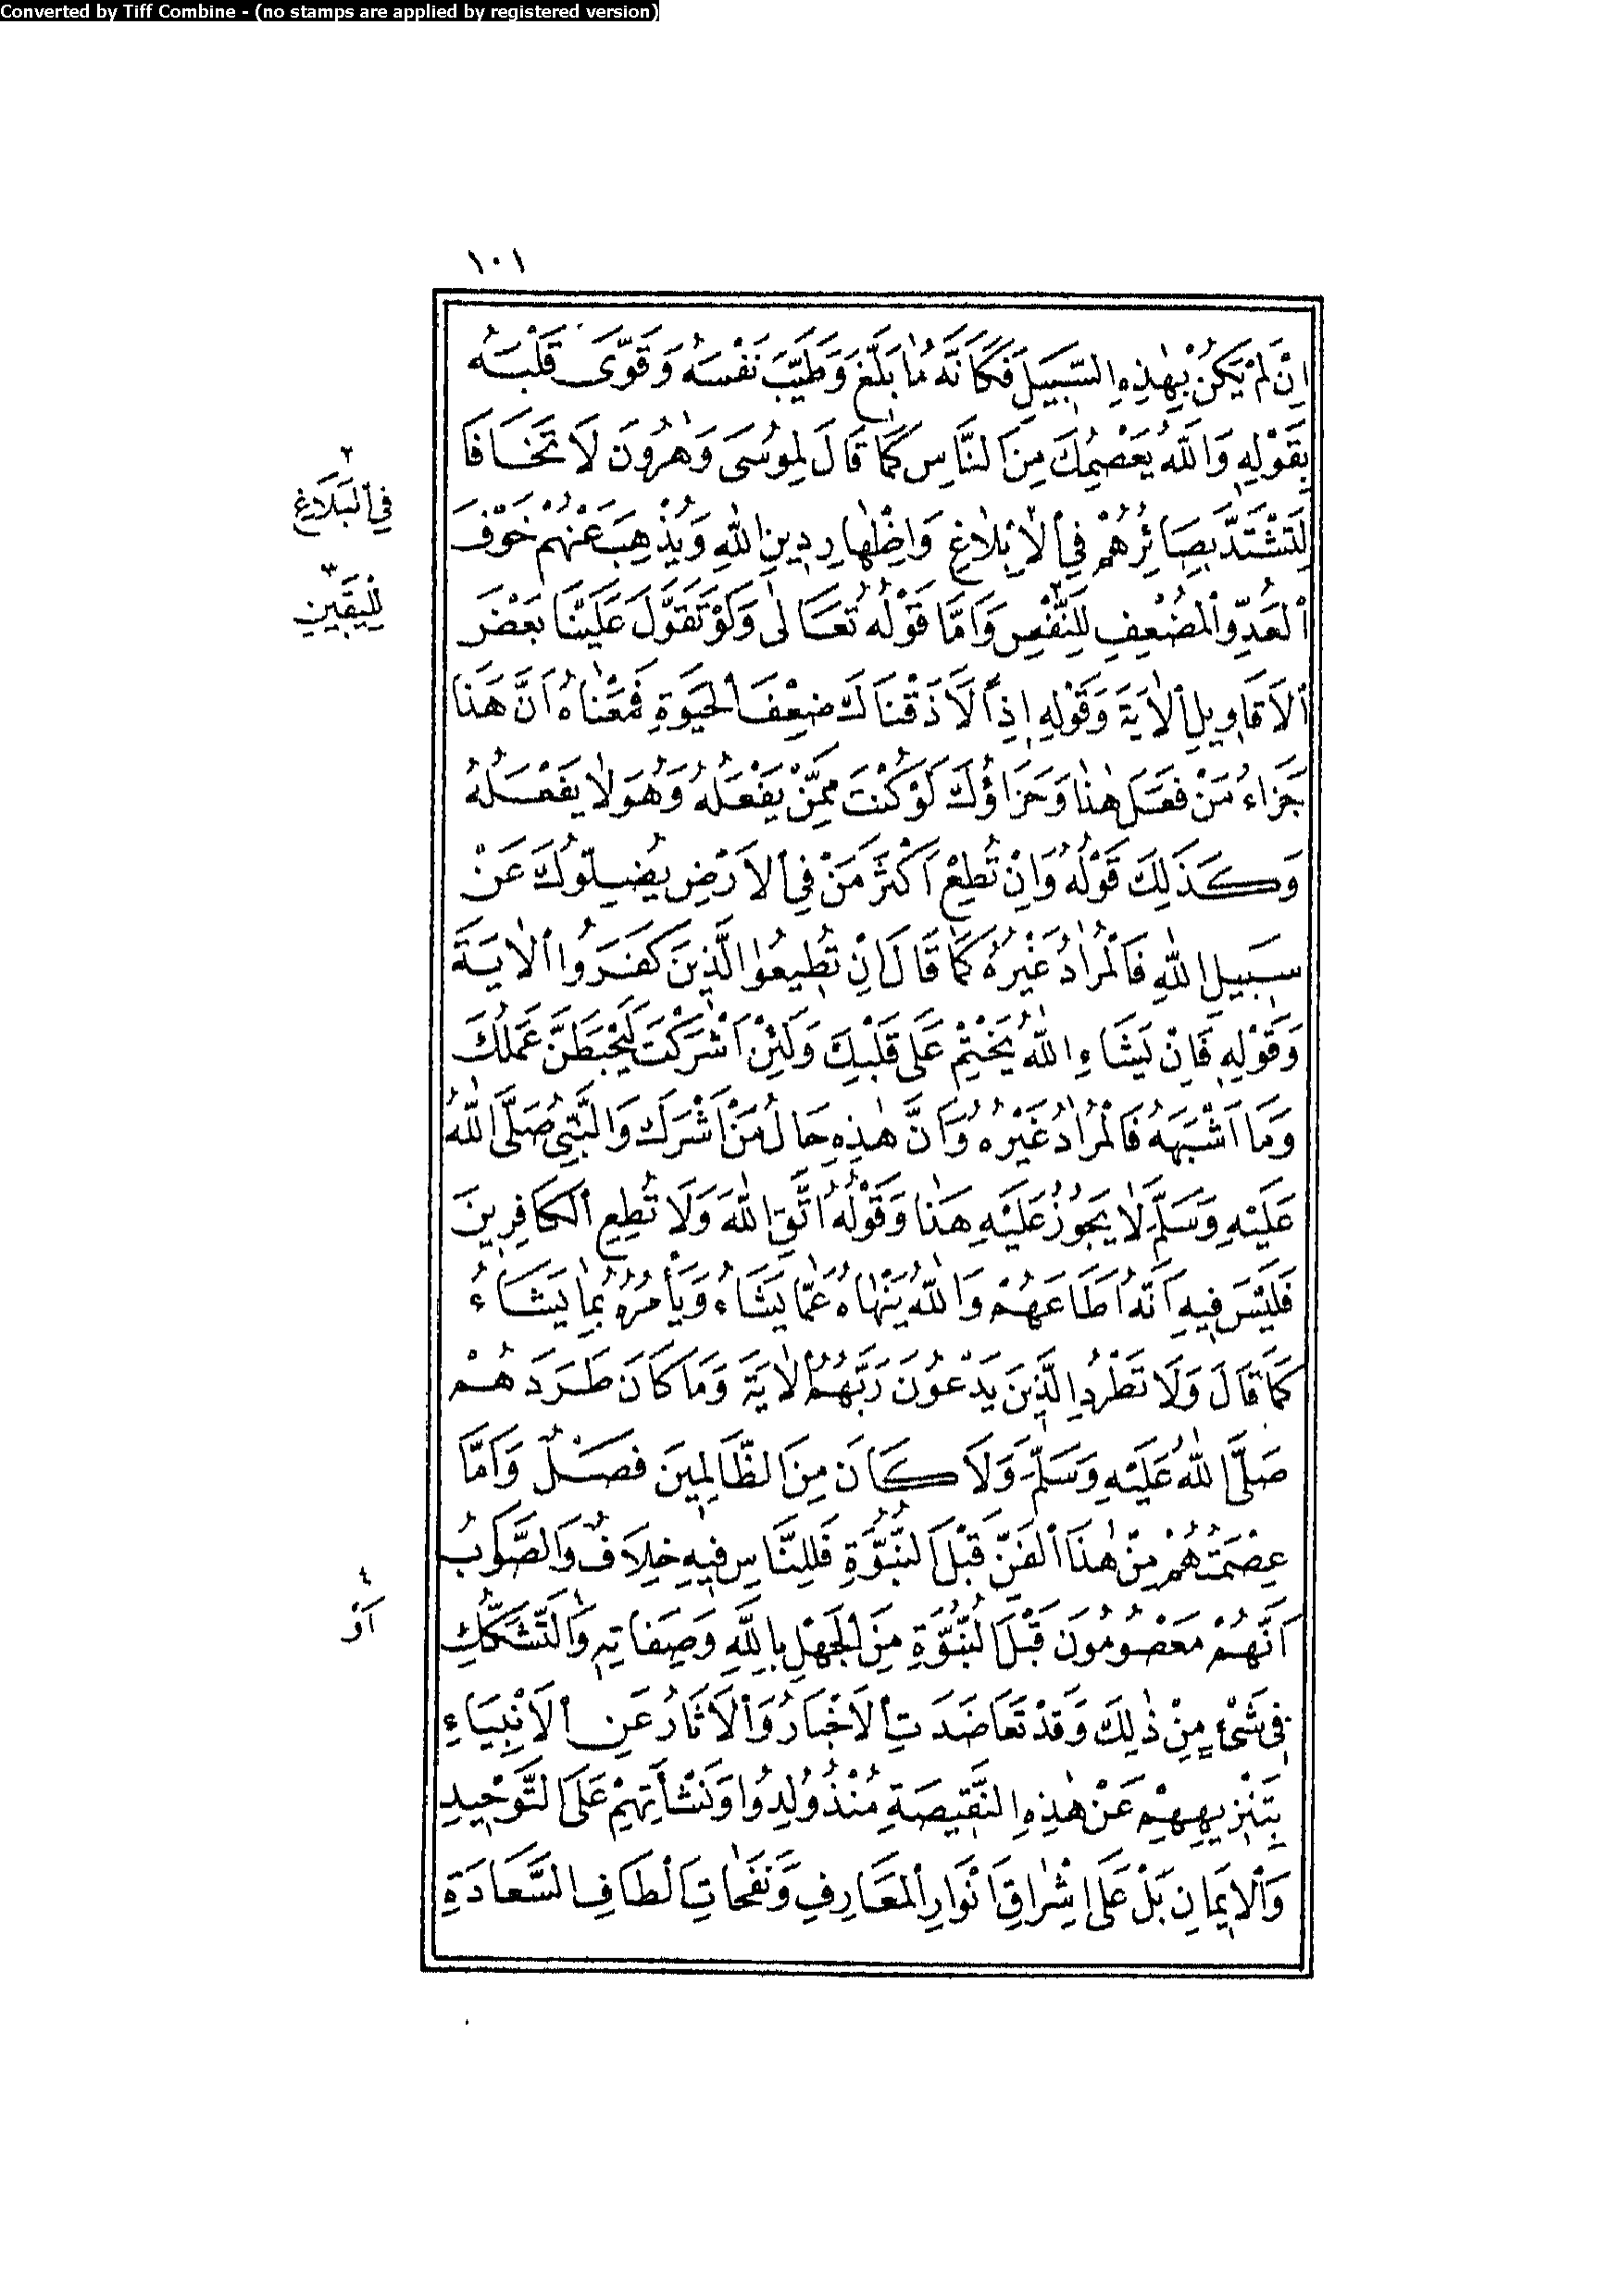 Converted by Tiff Combine - (no stamps are applied by registered version)
١٠١
اِنْ لَمْ يَكُنْ بِهٰذِهِ السَّبِيلِ فَكَاَنَّهُ مَا بَلَّغَ وَطَيَّبَ نَفْسَهُ وَقَوّٰى قَلْبَهُ
بِقَوْلِهِ وَاللّٰهُ يَعْصِمُكَ مِنَ النَّاسِ كَمَا قَالَ لِمُوسَى وَهٰرُونَ لَا تَخَافَا
لِتَشْتَدَّ بَصَائِرُهُمْ فِى الْاِبْلَاغِ وَاِظْهَارِ دِينِ اللّٰهِ وَيُذْهِبَ عَنْهُمْ خَوْفَ
الْعَدُوِّ الْمُضْعِفِ لِلنَّفْسِ وَاَمَّا قَوْلُهُ تَعَالٰى وَلَوْ تَقَوَّلَ عَلَيْنَا بَعْضَ
الْاَقَاوِيلِ الْاٰيَةَ وَقَوْلِهِ اِذًا لَاَذَقْنَاكَ ضِعْفَ الْحَيٰوةِ فَمَعْنَاهُ اَنَّ هَذَا
جَزَاءُ مَنْ فَعَلَ هٰذَا وَجَزَاؤُكَ لَوْ كُنْتَ مِمَّنْ يَفْعَلُهُ وَهُوَ لَا يَفْعَلُهُ
وَكَذَلِكَ قَوْلُهُ وَاِنْ تُطِعْ اَكْثَرَ مَنْ فِى الْاَرْضِ يُضِلُّوكَ عَنْ
سَبِيلِ اللّٰهِ فَالْمُرَادُ غَيْرُهُ كَمَا قَالَ اِنْ تُطِيعُوا الَّذِينَ كَفَرُوا الْاٰيَةَ
وَقَوْلِهِ فَاِنْ يَشَاءِ اللّٰهُ يَخْتِمْ عَلَى قَلْبِكَ وَلَئِنْ اَشْرَكْتَ لَيَحْبَطَنَّ عَمَلُكَ
وَمَا اَشْبَهَهُ فَالْمُرَادُ غَيْرُهُ وَاَنَّ هٰذِهِ حَالُ مَنْ اَشْرَكَ وَالنَّبِىُّ صَلَّى اللّٰهُ
عَلَيْهِ وَسَلَّمَ لَا يَجُوزُ عَلَيْهِ هَذَا وَقَوْلُهُ اتَّقِ اللّٰهَ وَلَا تُطِعِ الْكَافِرِينَ
فَلَيْسَ فِيهِ اَنَّهُ اَطَاعَهُمْ وَاللّٰهُ يَنْهَاهُ عَمَّا يَشَاءُ وَيَأْمُرُهُ بِمَا يَشَاءُ
كَمَا قَالَ وَلَا تَطْرُدِ الَّذِينَ يَدْعُونَ رَبَّهُمُ الْاٰيَةَ وَمَا كَانَ طَرَدَهُمْ
صَلَّى اللّٰهُ عَلَيْهِ وَسَلَّمَ وَلَا كَانَ مِنَ الظَّالِمِينَ فَصْلٌ وَاَمَّا
عِصْمَتُهُمْ مِنْ هٰذَا الْفَنِّ قَبْلَ النُّبُوَّةِ فَلِلنَّاسِ فِيهِ خِلَافٌ وَالصَّوَابُ
اَنَّهُمْ مَعْصُومُونَ قَبْلَ النُّبُوَّةِ مِنَ الْجَهْلِ بِاللّٰهِ وَصِفَاتِهِ وَالتَّشَكُّكِ
فِى شَىْءٍ مِنْ ذٰلِكَ وَقَدْ تَعَاضَدَتِ الْاَخْبَارُ وَالْاٰثَارُ عَنِ الْاَنْبِيَاءِ
بِتَنْزِيهِهِمْ عَنْ هٰذِهِ النَّقِيصَةِ مُنْذُ وُلِدُوا وَنَشْأَتِهِمْ عَلَى التَّوْحِيدِ
وَالْاِيمَانِ بَلْ عَلَى اِشْرَاقِ اَنْوَارِ الْمَعَارِفِ وَنَفَحَاتِ اَلْطَافِ السَّعَادَةِ
٢
فِى الْبَلَاغِ
٣
لِلْيَقِينِ
٤
اَوْ